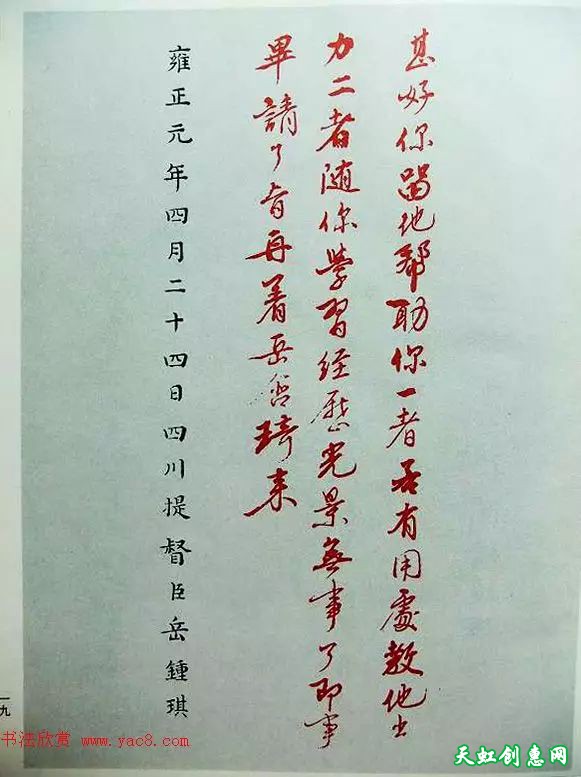 甚好你留他幫助你一者若有用處教他出
力二者随你學習經歷光景無事了即事
畢請了旨再着岳含琦来
雍正元年四月二十四日四川提督臣岳鍾琪
一九
书法欣赏 www.yac8.com
天虹创意网